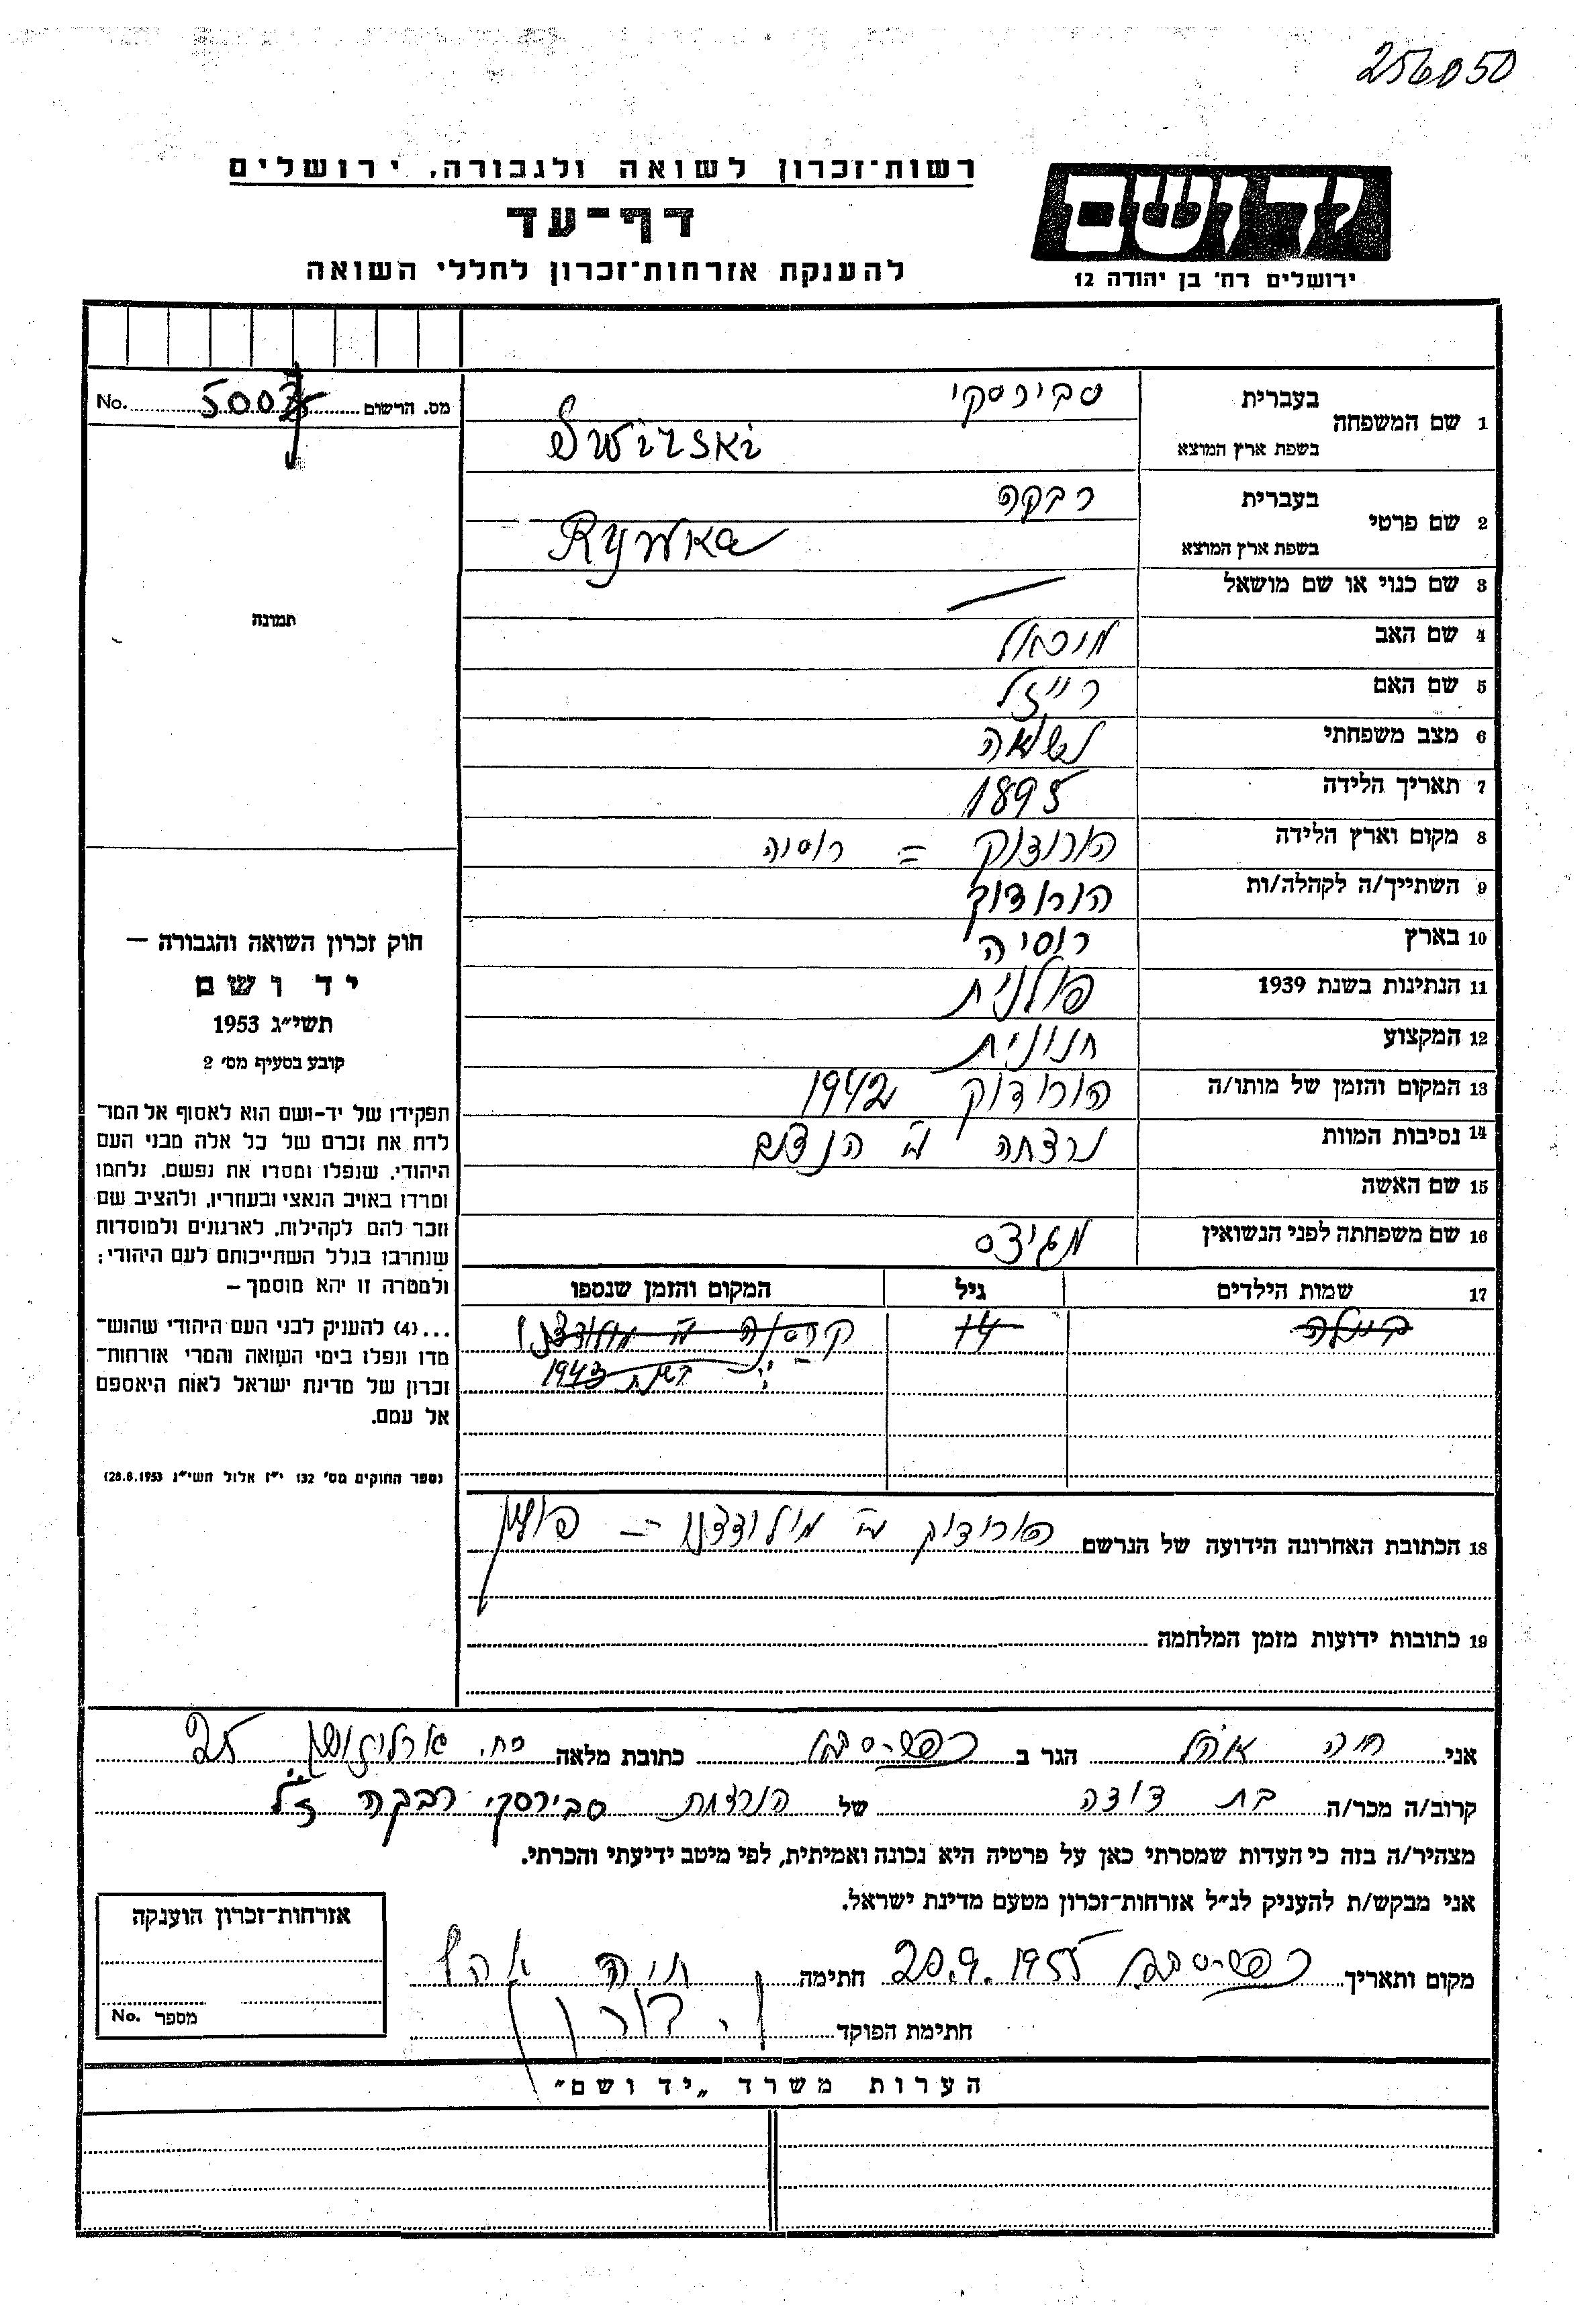 256050
רשות־זכרון לשואה ולגבורה, ירושלים
דף־עד
להענקת אזרחות־זכרון לחללי השואה
ידושם
ירושלים רח' בן יהודה 12
מס. הרשום 5007 No.
1 שם המשפחה בעברית סבירסקי
בשפת ארץ המוצא Swirski
2 שם פרטי בעברית רבקה
בשפת ארץ המוצא Rywka
3 שם כנוי או שם מושאל
4 שם האב מיכאל
5 שם האם רייזל
6 מצב משפחתי נשואה
7 תאריך הלידה 1895
8 מקום וארץ הלידה הורודוק = רוסיה
9 השתייך/ה לקהלה/ות הורודוק
10 בארץ רוסיה
11 הנתינות בשנת 1939 פולנית
12 המקצוע חנונית
13 המקום והזמן של מותו/ה הורודוק 1942
14 נסיבות המוות נרצחה ע"י הנצים
15 שם האשה
16 שם משפחתה לפני הנשואין
17 שמות הילדים גיל המקום והזמן שנספו
ביילה 14 קרסנה ע"י מולודצנו
בשנת 1943
18 הכתובת האחרונה הידועה של הנרשם הורודוק ע"י מולודצנו – פולין
19 כתובות ידועות מזמן המלחמה
תמונה
חוק זכרון השואה והגבורה –
יד ושם
תשי״ג 1953
קובע בסעיף מס׳ 2
תפקידו של יד-ושם הוא לאסוף אל המו־
לדת את זכרם של כל אלה מבני העם
היהודי, שנפלו ומסרו את נפשם, נלחמו
ומרדו באויב הנאצי ובעוזריו, ולהציב שם
וזכר להם לקהילות, לארגונים ולמוסדות
שנחרבו בגלל השתייכותם לעם היהודי;
ולמטרה זו יהא מוסמך –
...(4) להעניק לבני העם היהודי שהוש־
מדו ונפלו בימי השואה והמרי אזרחות־
זכרון של מדינת ישראל לאות היאספם
אל עמם.
(ספר החוקים מס׳ 132 י״ז אלול תשי״ג 28.8.1953)
אני חיה הגר ב כפר-סבא כתובת מלאה רח. ארלוזורוב 25
קרוב/ה מכר/ה בת דודה של הנרצחת סבירסקי רבקה ז"ל
מצהיר/ה בזה כי העדות שמסרתי כאן על פרטיה היא נכונה ואמיתית, לפי מיטב ידיעתי והכרתי.
אני מבקש/ת להעניק לנ״ל אזרחות־זכרון מטעם מדינת ישראל.
מקום ותאריך כפר-סבא 20.9.1955 חתימה חיה
חתימת הפוקד
אזרחות־זכרון הוענקה
מספר No.
הערות משרד „יד ושם״